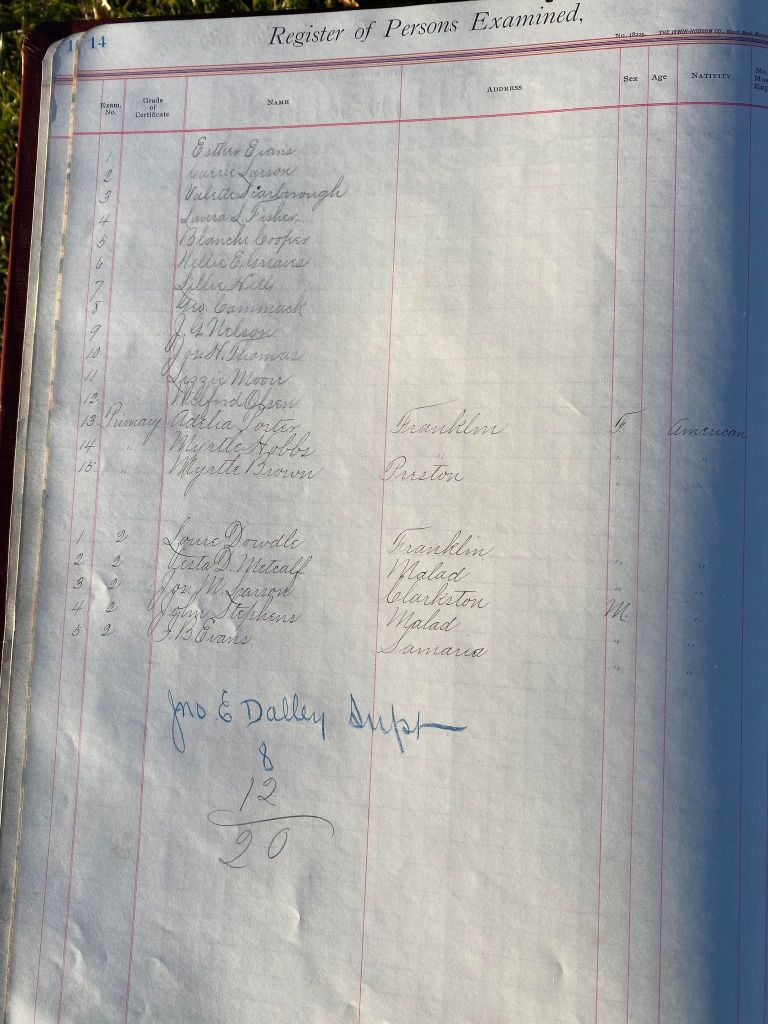 1 14 Register of Persons Examined,
No. 18225. THE IRWIN-HODSON CO.,
Exam. No. Grade of Certificate NAME ADDRESS Sex Age NATIVITY No.
1 Esther Evans
2 Carrie Larson
3 Valette Scarbrough
4 Laura L. Fisher
5 Blanche Cooper
6 Nellie E. Greaves
7 Lillie Hill
8 Geo. Cammack
9 J. Nelson
10 Jos. H. Thomas
11 Lizzie Moon
12 Wilford Olsen
13 Primary Adelia Porter Franklin F. American
14 " Myrtle Hobbs " " "
15 " Myrtle Brown Preston " "
1 2 Louie Dowdle Franklin " "
2 2 Vesta D. Metcalf Malad " "
3 2 Jos. M. Larson Clarkston M. "
4 2 John Stephens Malad " "
5 2 F. B. Evans Samaria " "
Jno E Dalley Supt
8
12
20